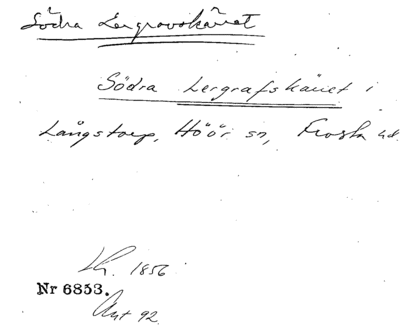 Södra Lergravskäret
Södra Lergrafskäret i
Långstorp, Höör sn, Frosta hd.
Lh. 1856
Nr 6853.
Ant 92